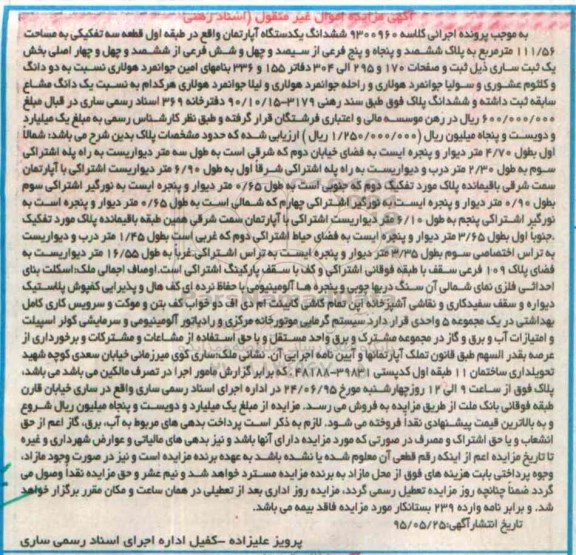 آگهی مزایده اموال غیر منقول (اسناد رهنی)
به موجب پرونده اجرائی کلاسه ۹۳۰۰۹۶۰ ششدانگ یکدستگاه آپارتمان واقع در طبقه اول قطعه سه تفکیکی به مساحت
۱۱۱/۵۶ مترمربع به پلاک ششصد و پنجاه و پنج فرعی از سیصد و چهل و شش فرعی از ششصد و چهل و چهار اصلی بخش
یک ثبت ساری ذیل ثبت و صفحات ۱۷۰ و ۲۹۵ الی ۳۰۴ دفاتر ۱۵۵ و ۳۳۶ بنامهای امین جوانمرد هولاری نسبت به دو دانگ
و کلثوم عشوری و سولیا جوانمرد هولاری و راحله جوانمرد هولاری و لیلا جوانمرد هولاری هرکدام به نسبت یک دانگ مشاع
سابقه ثبت داشته و ششدانگ پلاک فوق طبق سند رهنی ۳۱۷۹-۹۰/۱۰/۱۵ دفترخانه ۳۶۹ اسناد رسمی ساری در قبال مبلغ
۶۰۰/۰۰۰/۰۰۰ ریال در رهن موسسه مالی و اعتباری فرشتگان قرار گرفته و طبق نظر کارشناس رسمی به مبلغ یک میلیارد
و دویست و پنجاه میلیون ریال (۱/۲۵۰/۰۰۰/۰۰۰ ریال) ارزیابی شده که حدود مشخصات پلاک بدین شرح می باشد: شمالاً
اول بطول ۴/۷۰ متر دیوار و پنجره ایست به فضای خیابان دوم که شرقی است به طول سه متر دیواریست به راه پله اشتراکی
سوم به طول ۲/۳۰ متر درب و دیواریست به راه پله اشتراکی شرقاً اول به طول ۶/۹۰ متر دیواریست اشتراکی با آپارتمان
سمت شرقی باقیمانده پلاک مورد تفکیک دوم که جنوبی است به طول ۰/۶۵ متر دیوار و پنجره ایست به نورگیر اشتراکی سوم
بطول ۰/۹۰ متر دیوار و پنجره ایست به نورگیر اشتراکی چهارم که شمالی است به طول ۰/۶۵ متر دیوار و پنجره است به
نورگیر اشتراکی پنجم به طول ۶/۱۰ متر دیواریست اشتراکی با آپارتمان سمت شرقی همین طبقه باقیمانده پلاک مورد تفکیک
.جنوباً اول بطول ۳/۶۵ متر دیوار و پنجره ایست به فضای حیاط اشتراکی دوم که غربی است بطول ۱/۴۵ متر درب و دیواریست
به تراس اختصاصی سوم بطول ۳/۳۵ متر دیوار و پنجره ایست به تراس اشتراکی.غرباً به طول ۱۶/۵۵ متر دیواریست به
فضای پلاک ۱۰۹ فرعی سقف با طبقه فوقانی اشتراکی و کف با سقف پارکینگ اشتراکی است.اوصاف اجمالی ملک:اسکلت بنای
احداثی فلزی نمای شمالی آن سنگ دربها چوبی و پنجره ها آلومینیومی با حفاظ نرده ای کف هال و پذیرایی کفپوش پلاستیک
دیواره و سقف سفیدکاری و نقاشی آشپزخانه اپن تمام کاشی کابینت ام دی اف دو خواب کف بتن و موکت و سرویس کاری کامل
بهداشتی در یک مجموعه ۵ واحدی قرار دارد.سیستم گرمایی موتورخانه مرکزی و رادیاتور آلومینیومی و سرمایشی کولر اسپیلت
و امتیازات آب و برق و گاز در مجموعه مشترک و برق واحد مستقل و با حق استفاده از مشاعات و مشترکات و برخورداری از
عرصه بقدر السهم طبق قانون تملک آپارتمانها و آیین نامه اجرایی آن. نشانی ملک:ساری کوی میرزمانی خیابان سعدی کوچه شهید
تحویلداری ساختمان ۱۱ طبقه اول کدپستی ۳۹۸۳۱-۴۸۱۷۸ که برابر گزارش مامور اجرا در تصرف مالکین می باشد می باشد.
پلاک فوق از ساعت ۹ الی ۱۲ روزچهارشنبه مورخ ۲۴/۰۶/۹۵ در اداره اجرای اسناد رسمی ساری واقع در ساری خیابان قارن
طبقه فوقانی بانک ملت از طریق مزایده به فروش می رسد. مزایده از مبلغ یک میلیارد و دویست و پنجاه میلیون ریال شروع
و به بالاترین قیمت پیشنهادی نقداً فروخته می شود. لازم به ذکر است پرداخت بدهی های مربوط به آب، برق، گاز اعم از حق
انشعاب و یا حق اشتراک و مصرف در صورتی که مورد مزایده دارای آنها باشد و نیز بدهی های مالیاتی و عوارض شهرداری و غیره
تا تاریخ مزایده اعم از اینکه رقم قطعی آن معلوم شده یا نشده باشد به عهده برنده مزایده است و نیز در صورت وجود مازاد،
وجوه پرداختی بابت هزینه های فوق از محل مازاد به برنده مزایده مسترد خواهد شد و نیم عشر و حق مزایده نقداً وصول می
گردد ضمناً چنانچه روز مزایده تعطیل رسمی گردد، مزایده روز اداری بعد از تعطیلی در همان ساعت و مکان مقرر برگزار خواهد
شد. و برابر نامه وارده ۲۳۹ بستانکار مورد مزایده فاقد بیمه می باشد.
تاریخ انتشارآگهی:۹۵/۰۵/۲۵
پرویز علیزاده –کفیل اداره اجرای اسناد رسمی ساری